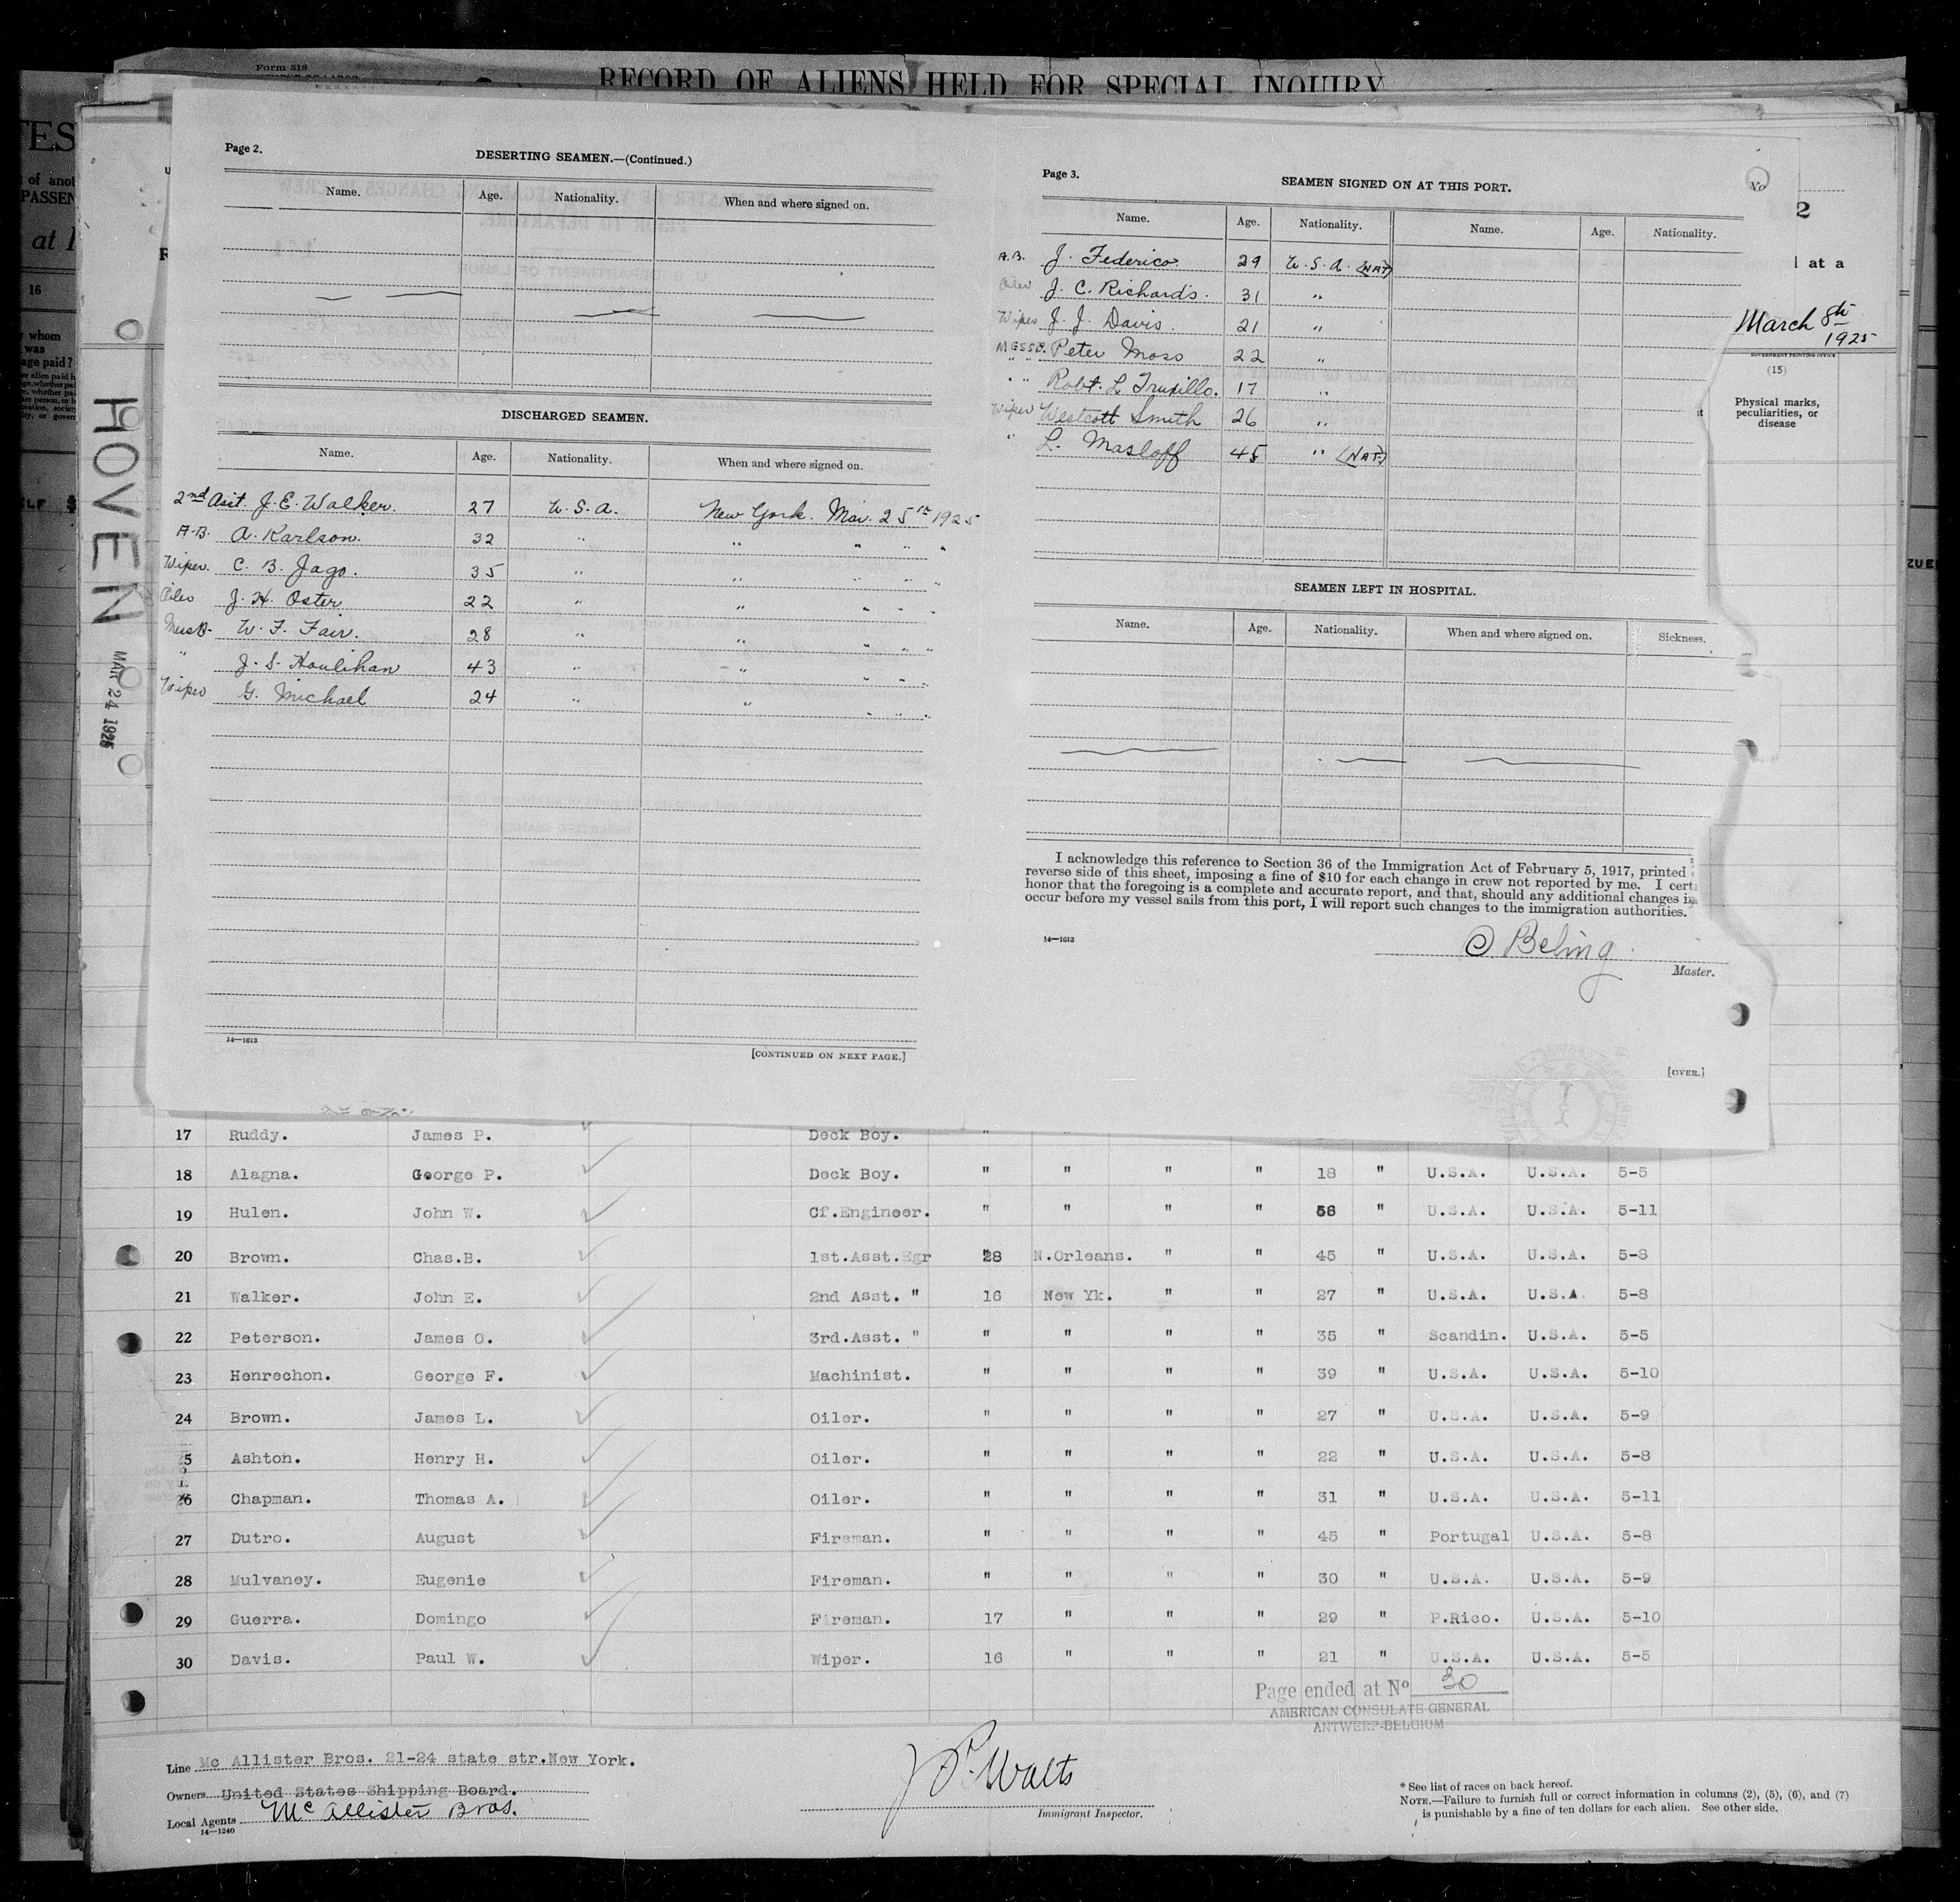 Form 518
RECORD OF ALIENS HELD FOR SPECIAL INQUIRY
Page 2.
DESERTING SEAMEN.—(Continued.)
Name. Age. Nationality. When and where signed on.
DISCHARGED SEAMEN.
Name. Age. Nationality. When and where signed on.
2nd Asst. J. E. Walker. 27 U.S.A. New York. Mar. 25th 1925
A-B. A. Karlson. 32 " " " " "
Wiper. C. B. Jago. 35 " " " " "
Oiler J. H. Oster 22 " " " " "
MessB. W. F. Fair. 28 " " " " "
" J. S. Houlihan 43 " " " " "
Wiper G. Michael 24 " " " " "
14—1613
[CONTINUED ON NEXT PAGE.]
Page 3.
SEAMEN SIGNED ON AT THIS PORT.
Name. Age. Nationality. Name. Age. Nationality.
A.B. J. Federico. 29 U.S.A. (NAT)
Oiler J. C. Richards. 31 "
Wiper J. J. Davis. 21 "
MESSB. Peter Moss 22 "
" " Robt. L Trujillo. 17 "
Wiper Westcott Smith 26 "
" L. Masloff 45 " (NAT.)
SEAMEN LEFT IN HOSPITAL.
Name. Age. Nationality. When and where signed on. Sickness.
I acknowledge this reference to Section 36 of the Immigration Act of February 5, 1917, printed
reverse side of this sheet, imposing a fine of $10 for each change in crew not reported by me. I cert
honor that the foregoing is a complete and accurate report, and that, should any additional changes in
occur before my vessel sails from this port, I will report such changes to the immigration authorities.
14—1613
C Beling.
Master.
[OVER.]
No
2
at a
March 8th
1925
GOVERNMENT PRINTING OFFICE
(15)
Physical marks,
peculiarities, or
disease
TES
of anot
PASSEN
at
16
whom
was
age paid?
HOVEN
MAR 24 1925
17 Ruddy. James P. Deck Boy. "
18 Alagna. George P. Deck Boy. " " " " 18 " U.S.A. U.S.A. 5-5
19 Hulen. John W. Cf.Engineer. " " " " 56 " U.S.A. U.S.A. 5-11
20 Brown. Chas.B. 1st.Asst.Egr 28 N.Orleans. " " 45 " U.S.A. U.S.A. 5-8
21 Walker. John E. 2nd Asst. " 16 New Yk. " " 27 " U.S.A. U.S.A. 5-8
22 Peterson. James O. 3rd.Asst. " " " " " 35 " Scandin. U.S.A. 5-5
23 Henrechon. George F. Machinist. " " " " 39 " U.S.A. U.S.A. 5-10
24 Brown. James L. Oiler. " " " " 27 " U.S.A. U.S.A. 5-9
25 Ashton. Henry H. Oiler. " " " " 22 " U.S.A. U.S.A. 5-8
26 Chapman. Thomas A. Oiler. " " " " 31 " U.S.A. U.S.A. 5-11
27 Dutro. August Fireman. " " " " 45 " Portugal U.S.A. 5-8
28 Mulvaney. Eugenie Fireman. " " " " 30 " U.S.A. U.S.A. 5-9
29 Guerra. Domingo Fireman. 17 " " " 29 " P.Rico. U.S.A. 5-10
30 Davis. Paul W. Wiper. 16 " " " 21 " U.S.A. U.S.A. 5-5
Page ended at No 30
AMERICAN CONSULATE GENERAL
ANTWERP-BELGIUM
Line Mc Allister Bros. 21-24 state str.New York.
Owners United States Shipping Board.
Local Agents McAllister Bros.
14—1240
J P. Walts
Immigrant Inspector.
* See list of races on back hereof.
NOTE.—Failure to furnish full or correct information in columns (2), (5), (6), and (7)
is punishable by a fine of ten dollars for each alien. See other side.